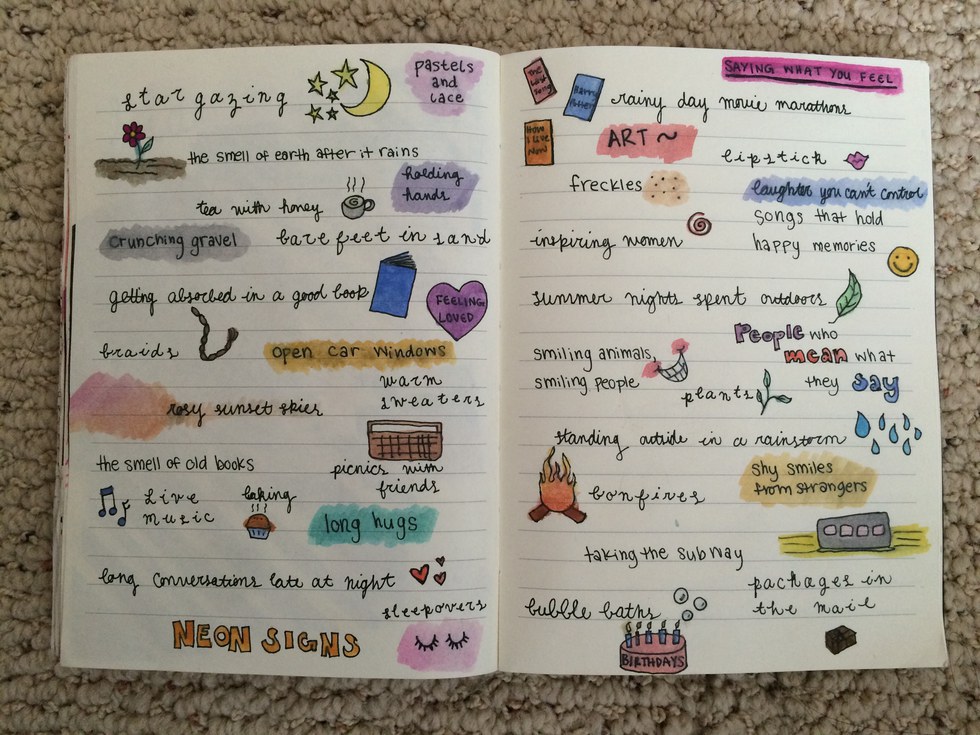 star gazing
pastels
and
lace
the smell of earth after it rains
holding
hands
tea with honey
crunching gravel
bare feet in sand
getting absorbed in a good book
FEELING
LOVED
braids
open car windows
warm
sweaters
rosy sunset skies
the smell of old books
picnics with
friends
live
music
baking
long hugs
long conversations late at night
sleepovers
NEON SIGNS
SAYING WHAT YOU FEEL
The
Last
Song
Harry
Potter
rainy day movie marathons
How
I Live
Now
ART ~
lipstick
freckles
laughter you can't control
songs that hold
happy memories
inspiring women
summer nights spent outdoors
People who
mean what
they say
smiling animals,
smiling people
plants
standing outside in a rainstorm
shy smiles
from strangers
bonfires
taking the subway
packages in
the mail
bubble baths
BIRTHDAYS